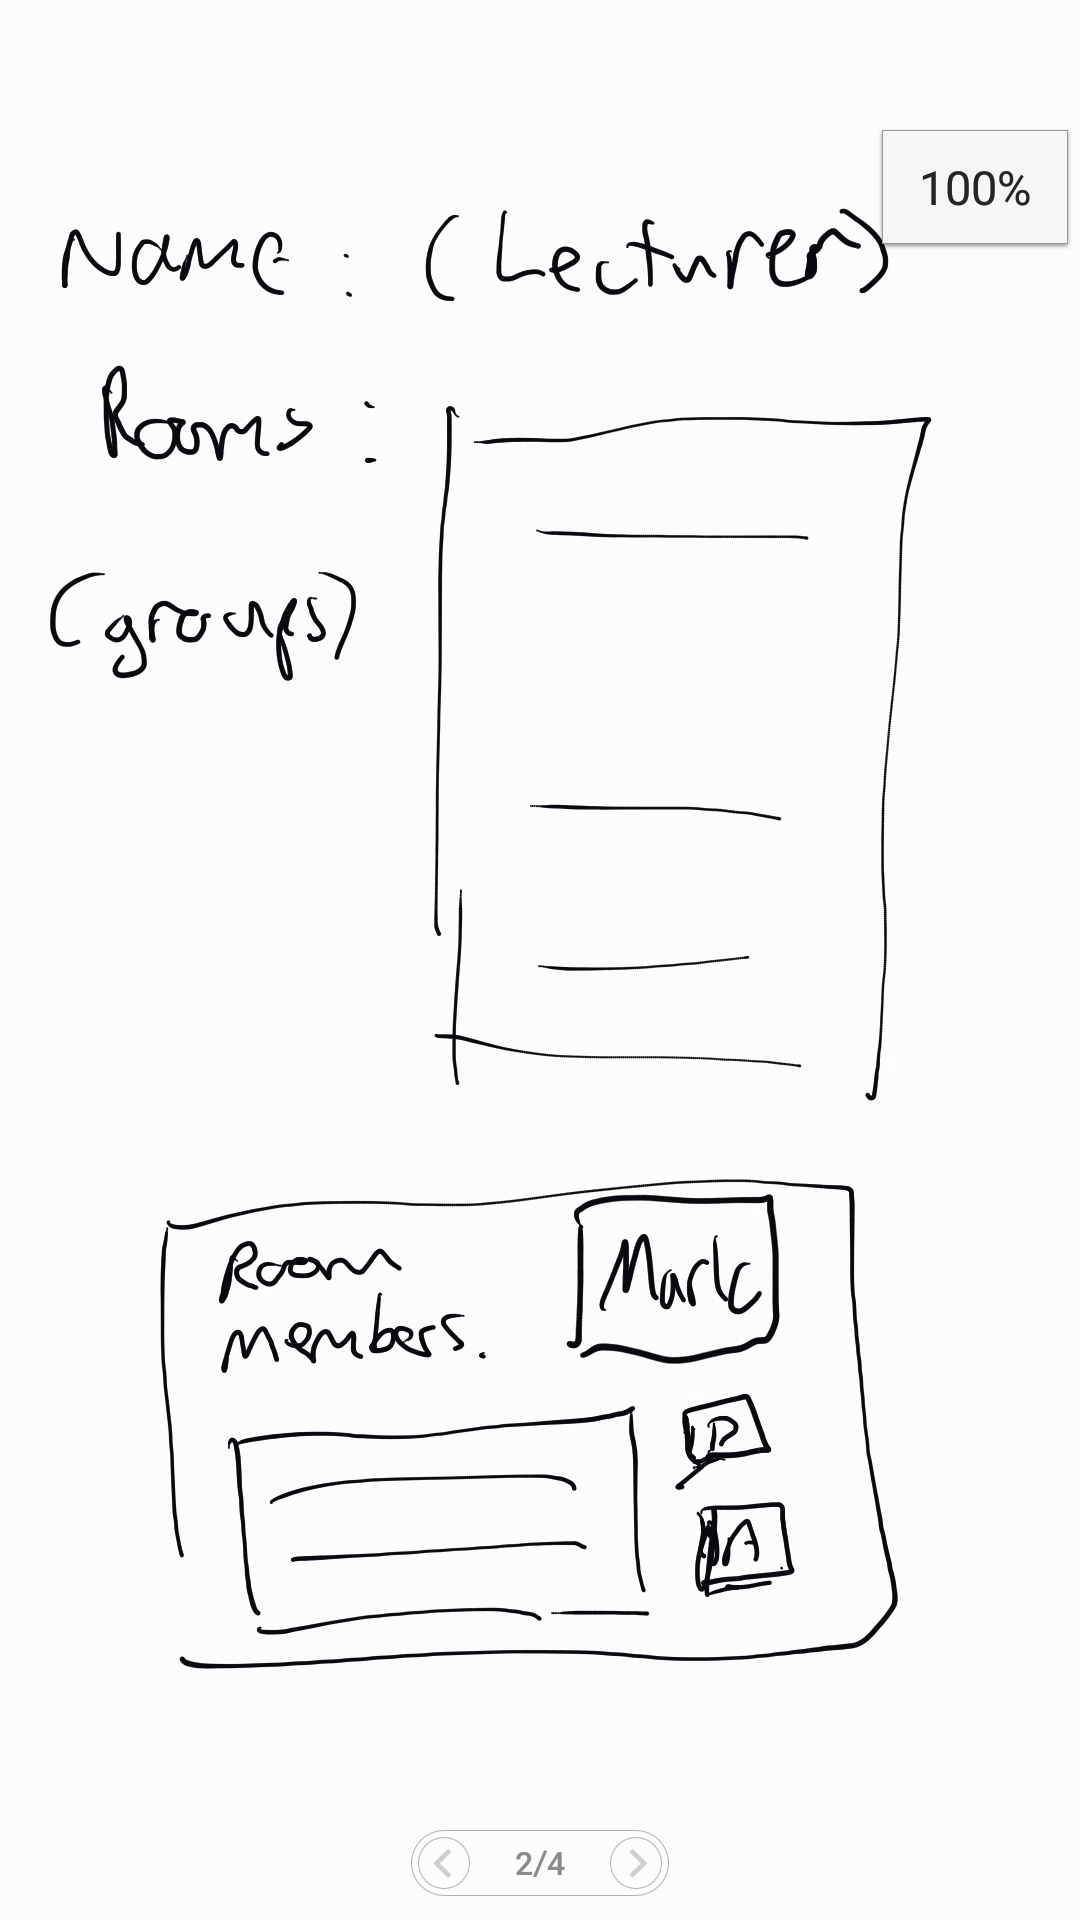 100%
Name : (Lecturer)
Rooms :
(groups)
Room
members.
Mark
P
A
2/4